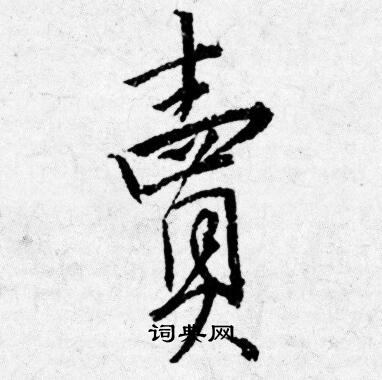 賣
词典网